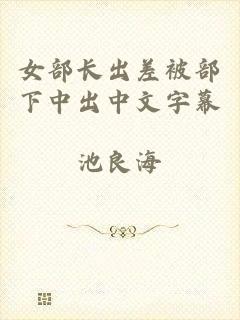 女部长出差被部
下中出中文字幕
池良海